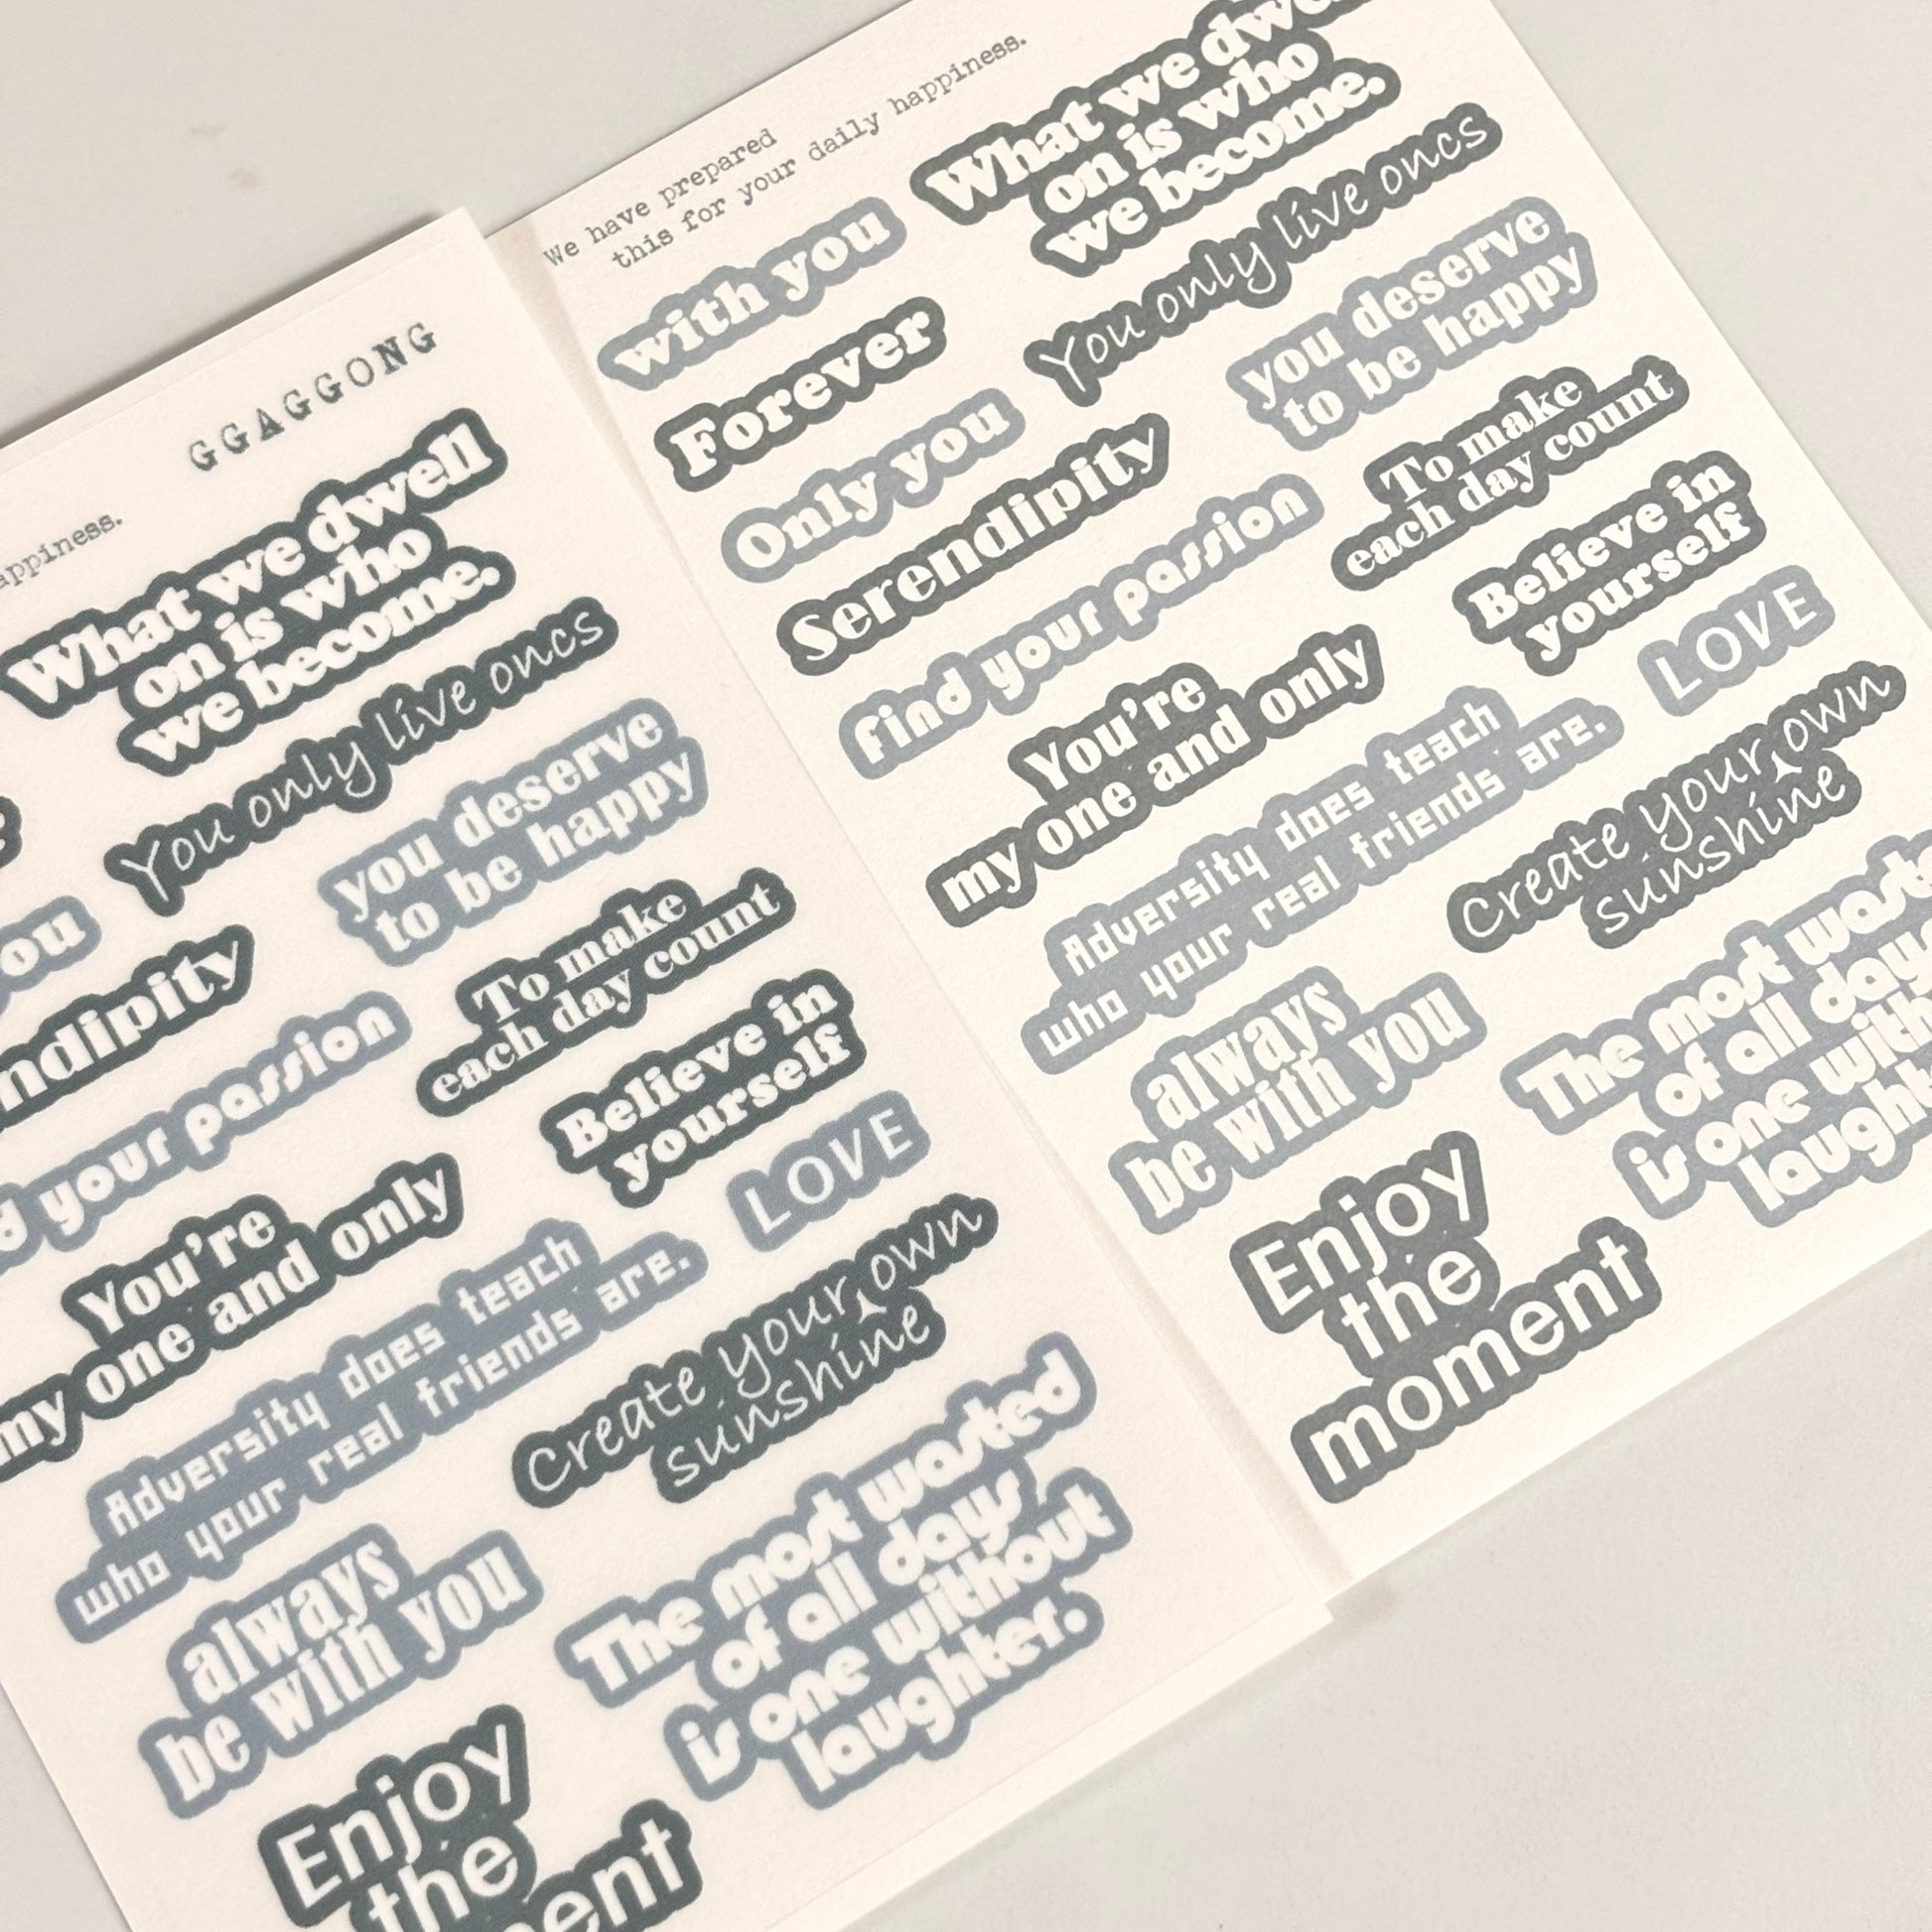 GGAGGONG
appiness.
What we dwell
on is who
we become.
You only live oncs
you deserve
to be happy
ou
ndipity
To make
each day count
d your passion
Believe in
yourself
You're
my one and only
LOVE
Adversity does teach
who your real friends are.
Create your own
sunshine
always
be with you
The most wasted
of all days
is one without
laughter.
Enjoy
the
ent
We have prepared
this for your daily happiness.
What we dwe
on is who
we become.
with you
You only live oncs
Forever
you deserve
to be happy
Only you
Serendipity
To make
each day count
find your passion
Believe in
yourself
You're
my one and only
LOVE
Adversity does teach
who your real friends are.
Create your own
sunshine
always
be with you
The most waste
of all day
is one with
laught
Enjoy
the
moment